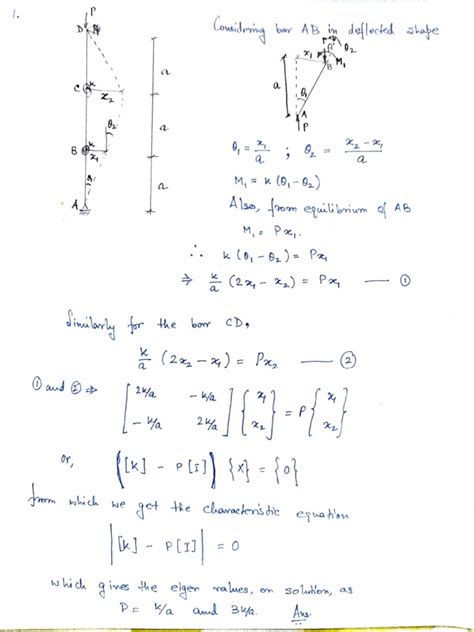 1.
P
D
Considering bar AB in deflected shape
k
C
x₂
a
θ₂
k
B
x₁
a
θ₁
A
a
x₁
θ₂
B
M₁
a
θ₁
A
P
θ₁ = x₁/a ; θ₂ = (x₂ - x₁)/a
M₁ = k (θ₁ - θ₂)
Also, from equilibrium of AB
M₁ = Px₁.
∴ k (θ₁ - θ₂) = Px₁
⇒ k/a (2x₁ - x₂) = Px₁ — ①
Similarly for the bar CD,
k/a (2x₂ - x₁) = Px₂ — ②
① and ② ⇒ [2k/a -k/a; -k/a 2k/a] {x₁; x₂} = P {x₁; x₂}
or, ([K] - P[I]) {X} = {0}
from which we get the characteristic equation
|[K] - P[I]| = 0
which gives the eigen values, on solution, as
P = k/a and 3k/a. Ans.